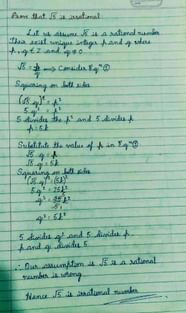 Prove that √5 is irrational.
Let us assume √5 is a rational number
Their exist unique integer p and q where
p, q ∈ Z and q ≠ 0
√5 = p/q ⟹ Consider Eqⁿ ①
Squaring on both sides
(√5 q)² = p²
5 q² = p²
5 divides the p² and 5 divides p
p = 5k
Substitute the value of p in Eqⁿ ①
√5 q = p
√5 q = 5k
Squaring on both sides
(√5 q)² = (5k)²
5q² = 25k²
q² = 25k²/5
q² = 5k²
5 divides q² and 5 divides p
p and q divides 5
∴ Our assumption is √5 is a rational
number is wrong
Hence √5 is irrational number